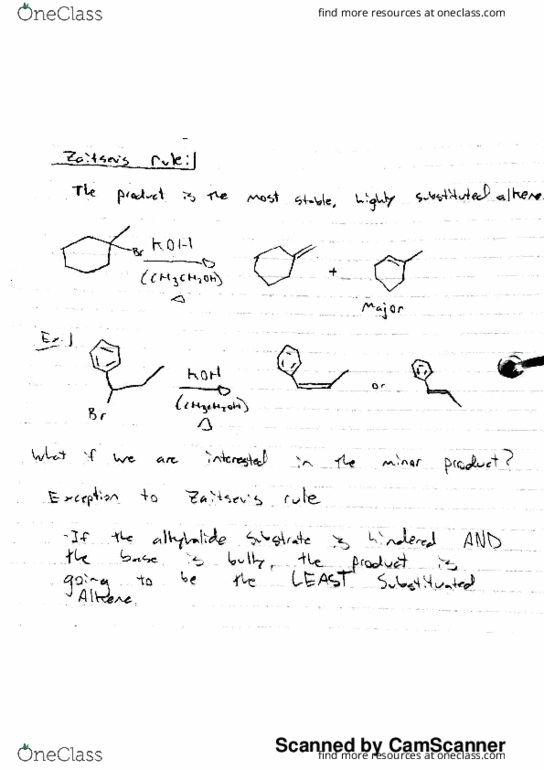 OneClass find more resources at oneclass.com
Zaitsev's rule:
The product is the most stable, highly substituted alkene.
Br KOH
(CH3CH2OH)
Δ
+
Major
Ex.)
Br
KOH
(CH3CH2OH)
Δ
or
What if we are interested in the minor product?
Exception to Zaitsev's rule
- If the alkylhalide substrate is hindered AND
the base is bulky, the product is
going to be the LEAST Substituated
Alkene.
Scanned by CamScanner
OneClass find more resources at oneclass.com